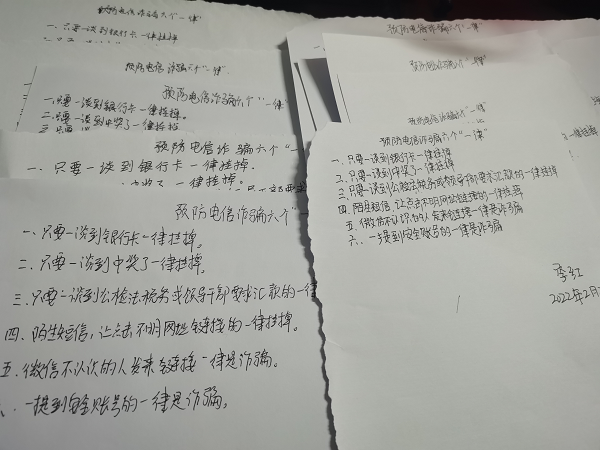 预防电信诈骗六个“一律”
一、只要一谈到银行卡一律挂掉
预防电信诈骗六个“一律”
预防电信诈骗六个“一律”
一.只要一谈到银行卡一律挂掉。
二.只要一谈到中奖了一律挂掉
预防电信诈骗六个“一
一、只要一谈到银行卡一律挂掉.
预防电信诈骗六个“
一、只要一谈到银行卡一律挂掉。
二、只要一谈到中奖了一律挂掉。
三、只要一谈到公检法税务或领导干部要求汇款的一律
四、陌生短信，让点击不明网址链接的一律挂掉。
五、微信不认识的人发来链接一律是诈骗。
、一提到安全账号的一律是诈骗。
预防电信诈骗六个“一律
预防电信诈骗六个“一律”
预防电信诈骗六个“一律”
预防电信诈骗六个“一律”
一、只要一谈到银行卡一律挂掉
二、只要一谈到中奖了一律挂掉
三、只要一谈到公检法税务或领导干部要求汇款的一律挂掉
四、陌生短信，让点击不明网址链接的一律挂掉
五、微信不认识的人发来链接一律是诈骗
六、一提到安全账号的一律是诈骗
李红
2022年2月